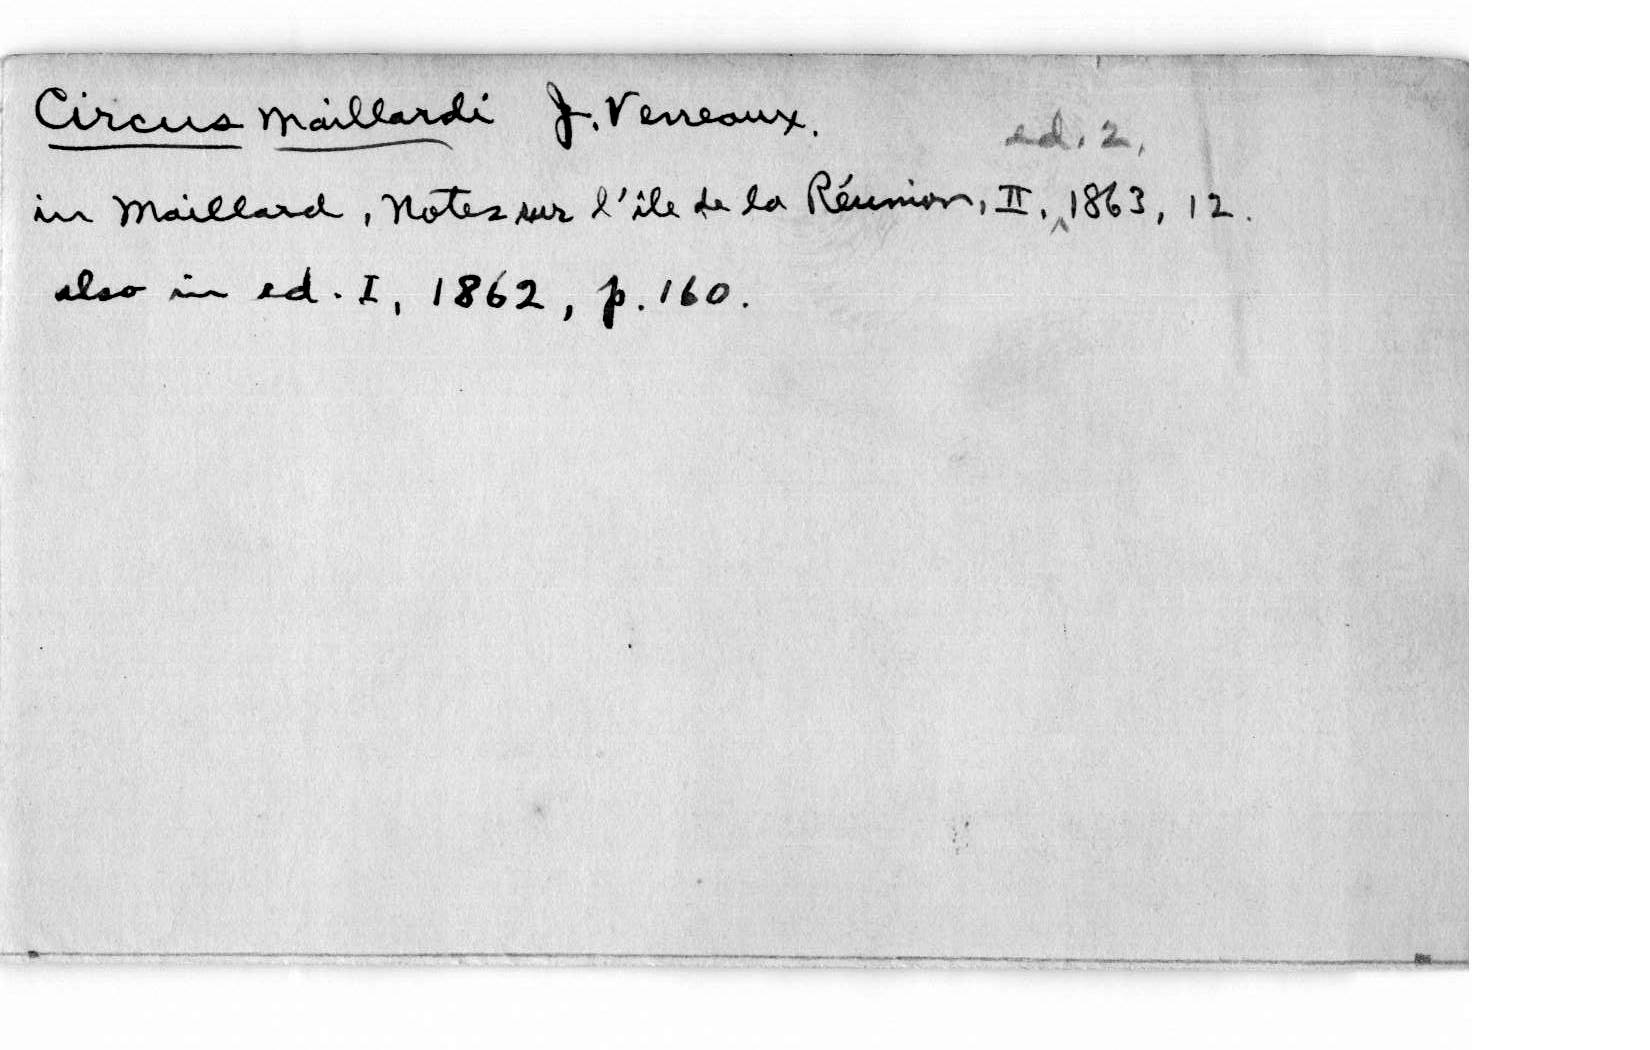 Circus maillardi J. Verreaux.
in Maillard, Notes sur l'île de la Réunion, II, ^ed. 2, 1863, 12.
also in ed. I, 1862, p. 160.